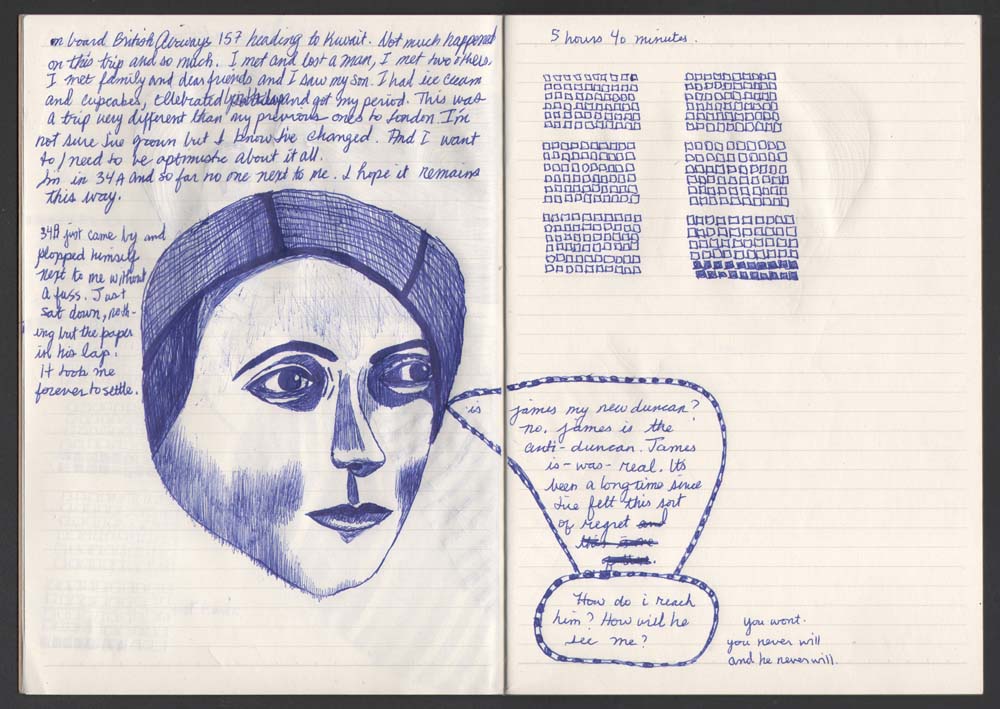 on board British Airways 157 heading to Kuwait. Not much happened
on this trip and so much. I met and lost a man, I met two others,
I met family and dear friends and I saw my son. I had ice cream
and cupcakes, celebrated birthdays and got my period. This was
a trip very different than my previous ones to London. I'm
not sure I've grown but I know I've changed. And I want
to / need to be optimistic about it all.
I'm in 34A and so far no one next to me. I hope it remains
this way.
34B just came by and
plopped himself
next to me without
a fuss. Just
sat down, noth-
ing but the paper
in his lap.
It took me
forever to settle.
5 hours 40 minutes.
is james my new duncan?
no. james is the
anti-duncan. James
is-was-real. Its
been a long time since
I've felt this sort
of regret and
this same
How do i reach
him? How will he
see me?
you wont.
you never will
and he never will.